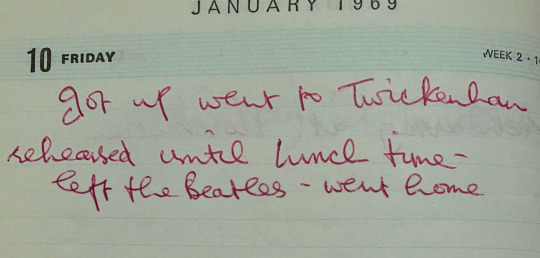 JANUARY 1969
10 FRIDAY
WEEK 2 · 1
got up went to Twickenham
rehearsed until lunch time -
left the Beatles - went home